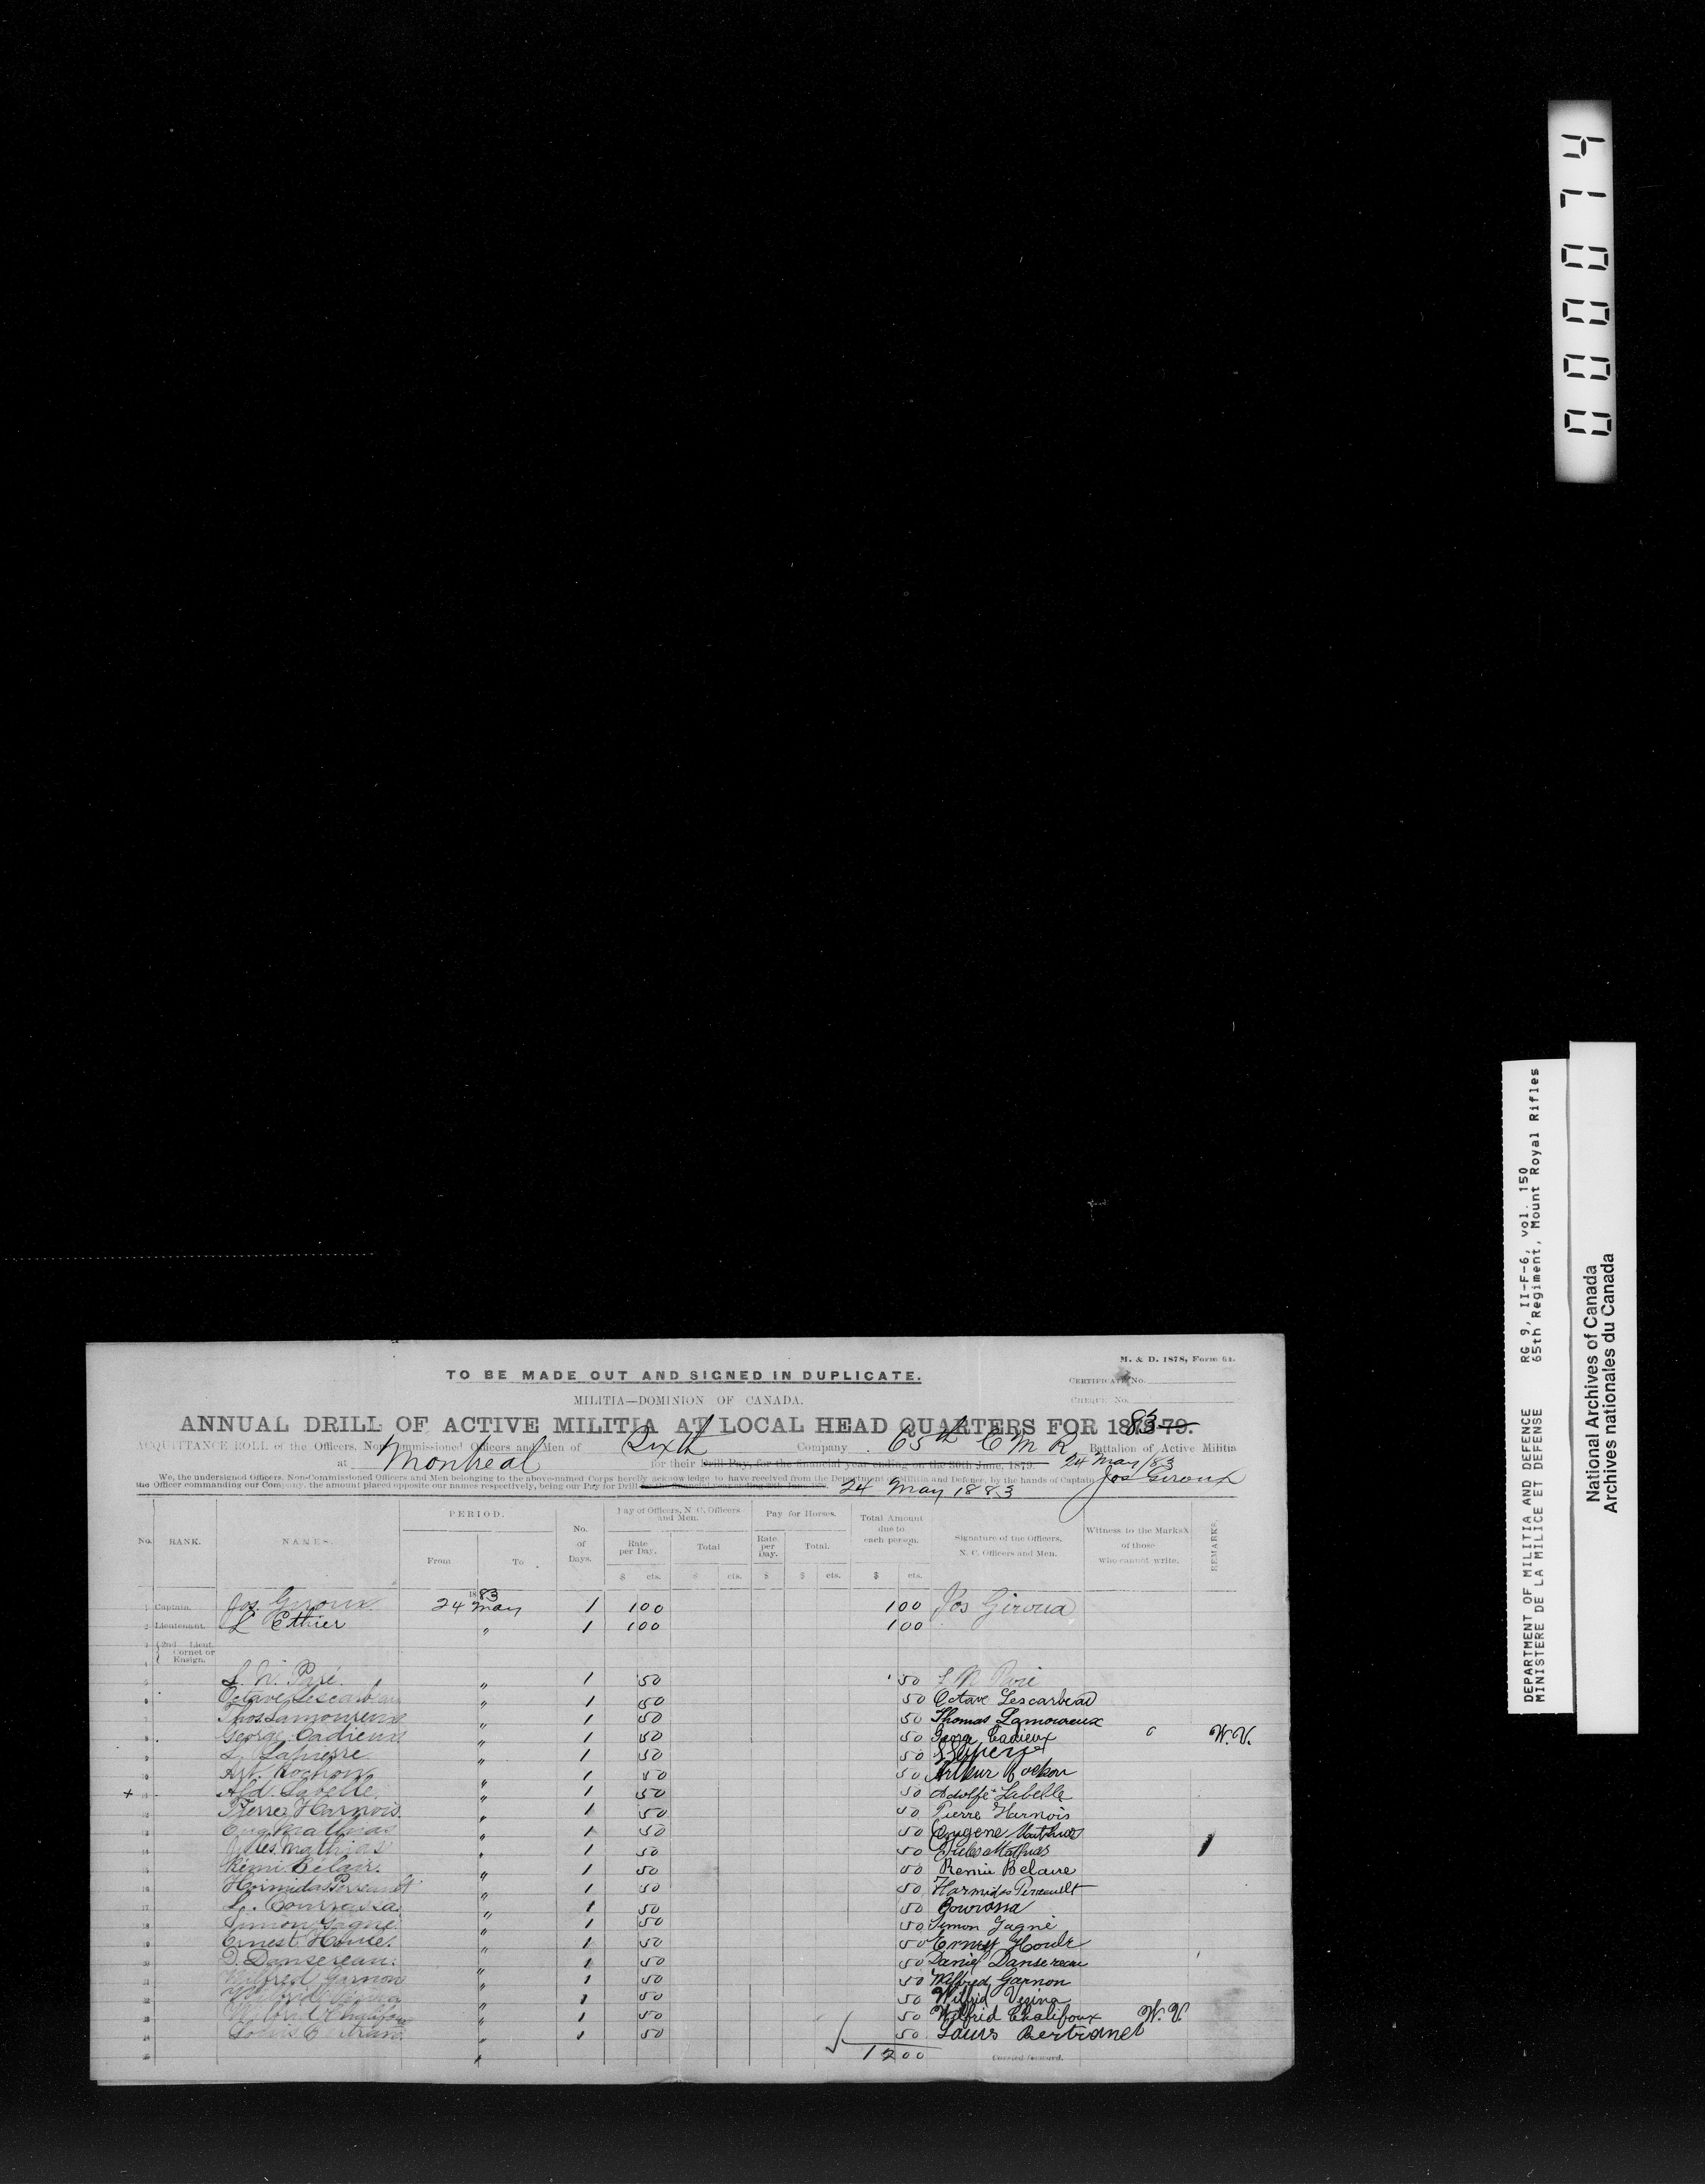 000074
DEPARTMENT OF MILITIA AND DEFENCE RG 9, II-F-6, vol. 150
MINISTERE DE LA MILICE ET DEFENSE 65th Regiment, Mount Royal Rifles
National Archives of Canada
Archives nationales du Canada
M. & D. 1878, Form 62.
TO BE MADE OUT AND SIGNED IN DUPLICATE.
CERTIFICATE No.
MILITIA—DOMINION OF CANADA.
CHEQUE No.
ANNUAL DRILL OF ACTIVE MILITIA AT LOCAL HEAD QUARTERS FOR 1883-79.
ACQUITTANCE ROLL of the Officers, Non-Commissioned Officers and Men of Sixth Company 65th C M R Battalion of Active Militia
at Montreal for their Drill Pay, for the financial year ending on the 30th June, 1879. 24 May/83
We, the undersigned Officers, Non-Commissioned Officers and Men belonging to the above-named Corps hereby acknowledge to have received from the Department of Militia and Defence, by the hands of Captain Jos Giroux
the Officer commanding our Company, the amount placed opposite our names respectively, being our Pay for Drill 24 May 1883
No. RANK. NAMES. PERIOD. From To No. of Days. Pay of Officers, N. C. Officers and Men. Rate per Day. Total Pay for Horses. Rate per Day. Total. Total Amount due to each person. Signature of the Officers, N. C. Officers and Men. Witness to the Marks X of those who cannot write. REMARKS.
$ cts. $ cts. $ $ cts. $ cts.
1883
1 Captain. Jos. Giroux 24 May 1 100 100 Jos Giroux
2 Lieutenant. L Ethier " 1 100 100
3 2nd Lieut.
4 Cornet or Ensign.
5 L. N. Paré " 1 50 50 L N Paré
6 Octave Lescarbeau " 1 50 50 Octave Lescarbeau
7 Thos. Lamoureux " 1 50 50 Thomas Lamoureux
8 George Cadieux " 1 50 50 George Cadieux W. V.
9 L. Lapierre " 1 50 50
10 Art. Rochon " 1 50 50 Arthur Rochon
+ 11 Ald. Labelle " 1 50 50 Adolfe Labelle
12 Pierre Harnois " 1 50 50 Pierre Harnois
13 Eug Mathias " 1 50 50 Eugene Mathias
14 Jules Mathias " 1 50 50 Jules Mathias
15 Rémi Bélair. " 1 50 50 Remie Belaire
16 Hormidas Perreault " 1 50 50 Harmidas Perreault
17 L. Bourrassa " 1 50 50 Bourassa
18 Simon Gagné " 1 50 50 Simon Gagné
19 Ernest Houle. " 1 50 50 Ernest Houle
20 D. Dansereau. " 1 50 50 Daniel Dansereau
21 Wilfred Garnon " 1 50 50 Wilfred Garnon
22 Wilfrid Vezina " 1 50 50 Wilfrid Vezina
23 Wilfrid Chalifoux " 1 50 50 Wilfrid Chalifoux W. V.
24 Louis Bertrand " 1 50 50 Louis Bertrand
25 " 1200 Carried forward.